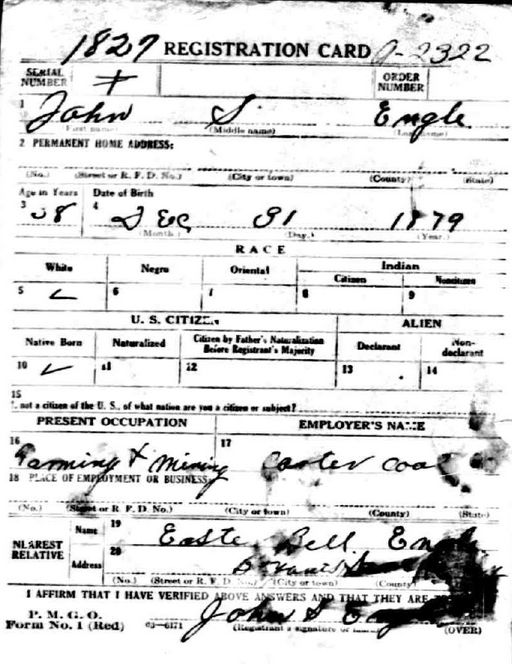 1827 REGISTRATION CARD 2322
SERIAL NUMBER ORDER NUMBER
1 John S Engle
(First name) (Middle name) (Last name)
2 PERMANENT HOME ADDRESS:
(No.) (Street or R. F. D. No.) (City or town) (County) (State)
Age in Years Date of Birth
3 38 4 Dec 31 1879
(Month.) (Day.) (Year.)
RACE
White Negro Oriental Indian
Citizen Noncitizen
5 6 7 8 9
U. S. CITIZEN ALIEN
Native Born Naturalized Citizen by Father's Naturalization Before Registrant's Majority Declarant Non-declarant
10 11 12 13 14
15
not a citizen of the U. S., of what nation are you a citizen or subject?
PRESENT OCCUPATION EMPLOYER'S NAME
16 17
Farming & Mining Carter Coal
18 PLACE OF EMPLOYMENT OR BUSINESS
(No.) (Street or R. F. D. No.) (City or town) (County) (State)
NEAREST RELATIVE
Name 19 Easte Bell
Address 20
(No.) (Street or R. F. D. No.) (City or town) (County)
I AFFIRM THAT I HAVE VERIFIED ABOVE ANSWERS AND THAT THEY ARE
P. M. G. O.
Form No. 1 (Red) 03—6171 John S
(Registrant's signature or (OVER)